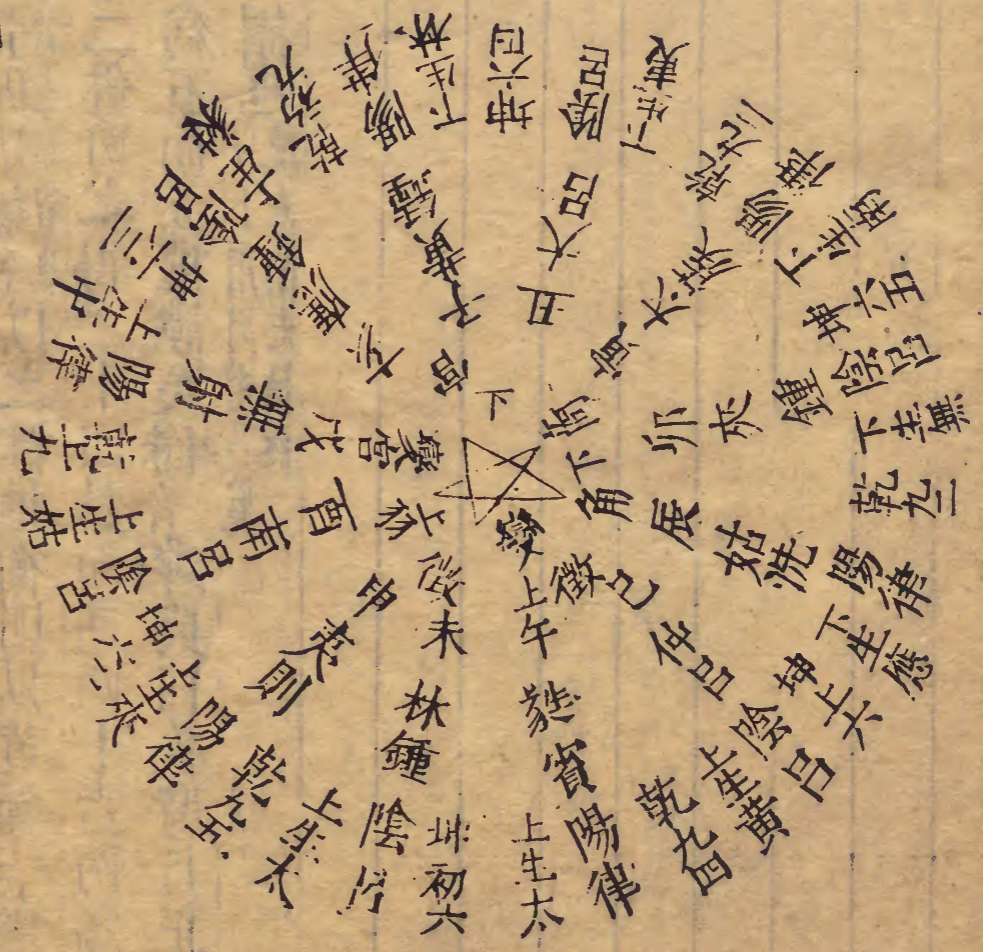 宮 子 黃鍾 陽律 乾初九 下生林
丑 大呂 陰呂 坤六四 下生夷
商 寅 太簇 陽律 乾九二 下生南
卯 夾鍾 陰呂 坤六五 下生無
角 辰 姑洗 陽律 乾九三 下生應
巳 仲呂 陰呂 坤上六 上生黃
變徵 午 蕤賓 陽律 乾九四 上生大
徵 未 林鍾 陰呂 坤初六 上生太
申 夷則 陽律 乾九五 上生夾
羽 酉 南呂 陰呂 坤六二 上生姑
變宮 戌 無射 陽律 乾上九 上生中
亥 應鍾 陰呂 坤六三 上生蕤
上
下
上
上